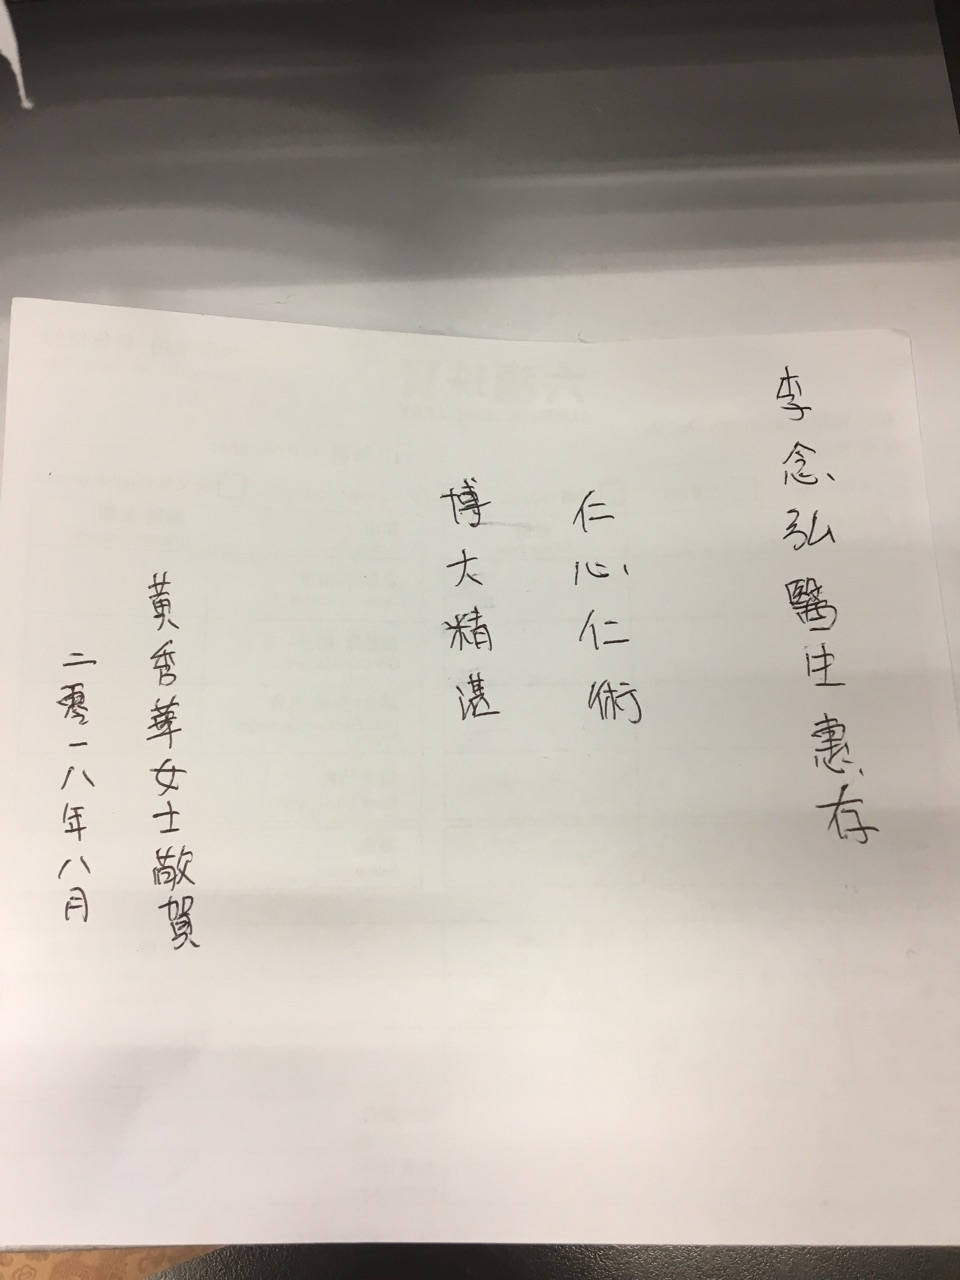 李念弘醫生惠存
仁心仁術
博大精湛
黃秀華女士敬賀
二零一八年八月